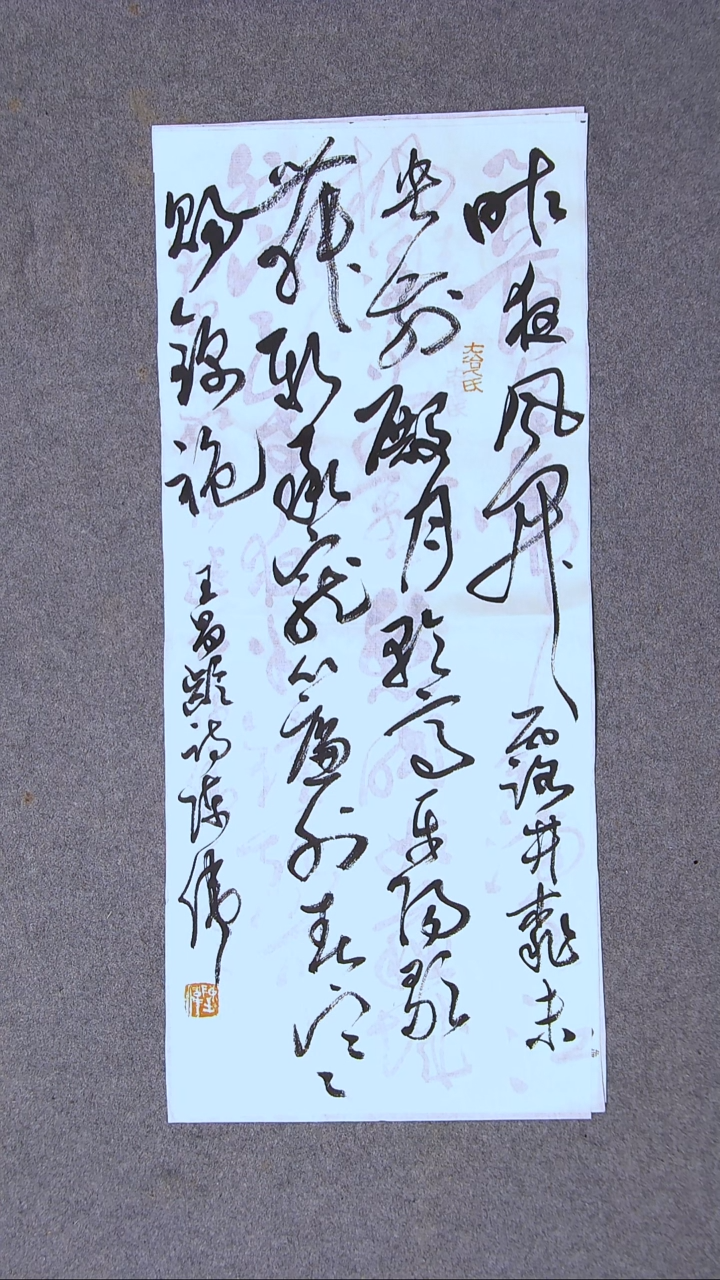 昨夜风开露井桃未
央前殿月轮高平阳歌
舞新承宠簾外春寒
赐锦袍 王昌龄诗 陈伟